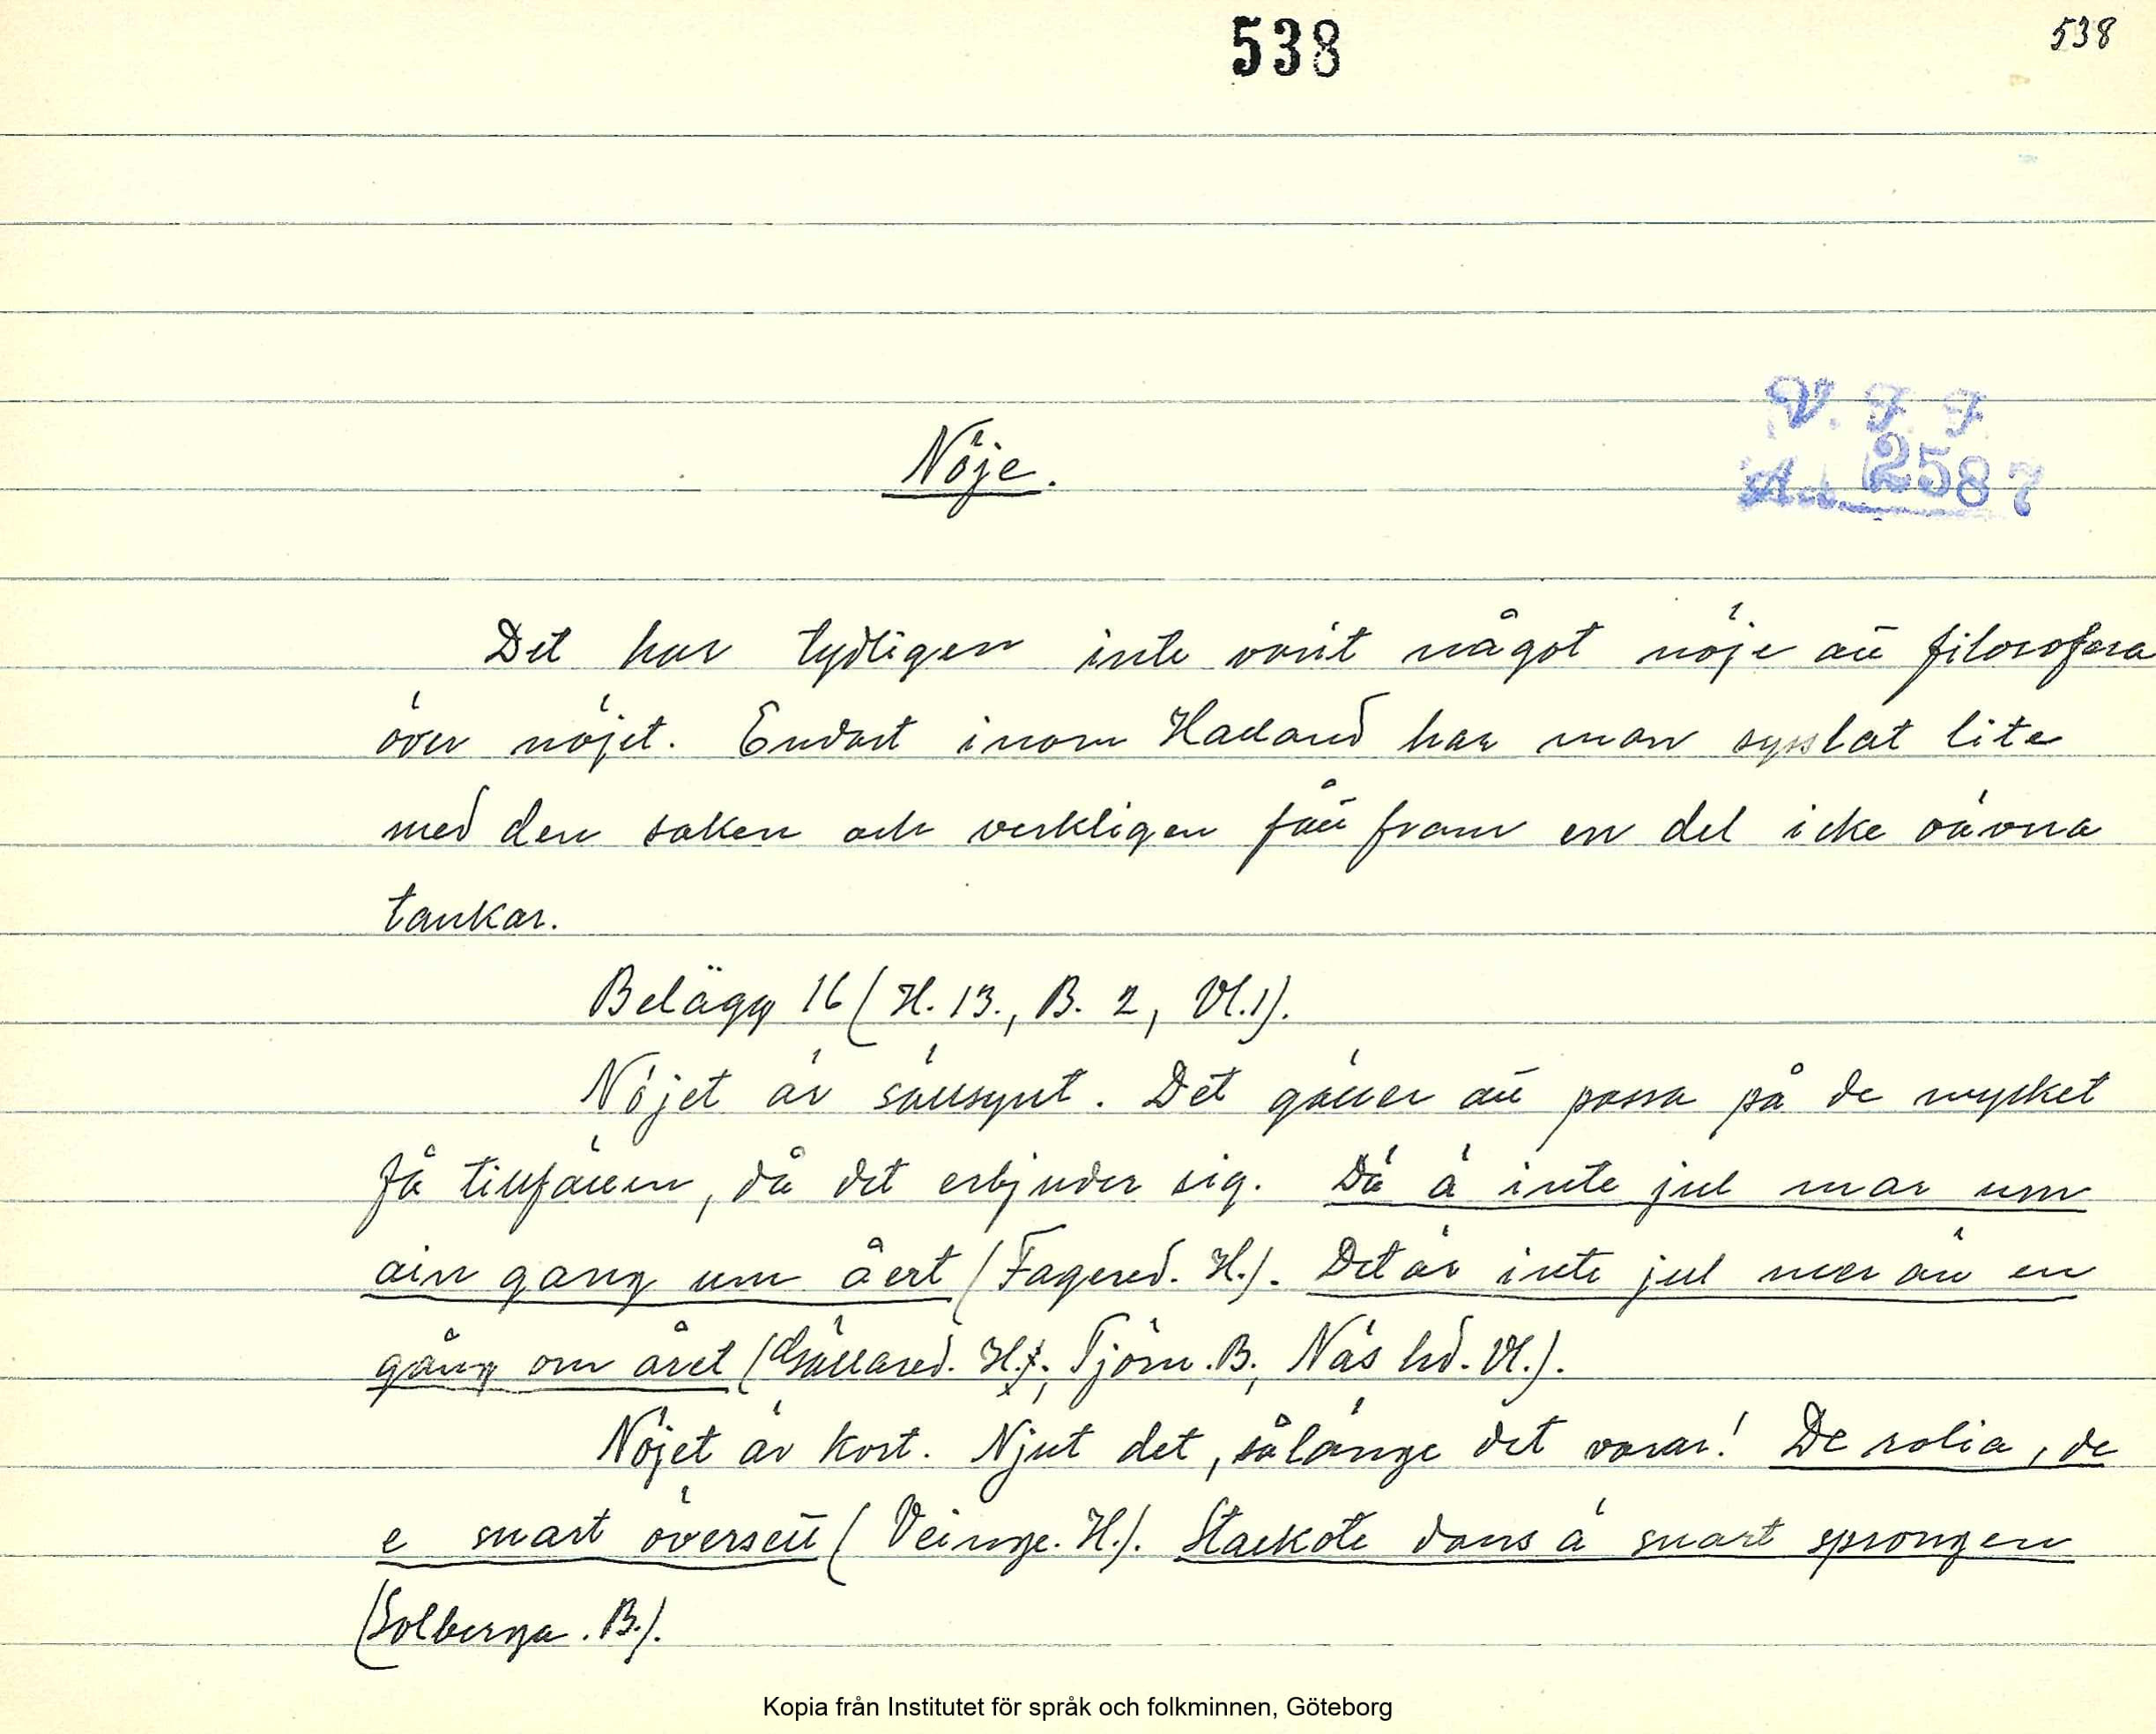 538
538
V. F. F.
Nöje.
2587
Det har tydligen inte varit något nöje att filosofera
över nöjet. Endast inom Halland har man sysslat lite
med den saken och verkligen fått fram en del icke oävna
tankar.
Belägg 16 (H. 13., B. 2, Vl. 1).
Nöjet är sällsynt. Det gäller att passa på de mycket
få tillfällen, då det erbjuder sig. Dä ä inte jul mar um
ain gang um åert (Fagered. H.). Det är inte jul mer än en
gång om året (Gällared. H.; Tjörn. B.; Näs hd. Vl.).
Nöjet är kort. Njut det, sålänge det varar! De rolia, de
e snart översett (Veinge. H.). Stackote dans ä snart sprongen
(Solberga. B.).
Kopia från Institutet för språk och folkminnen, Göteborg